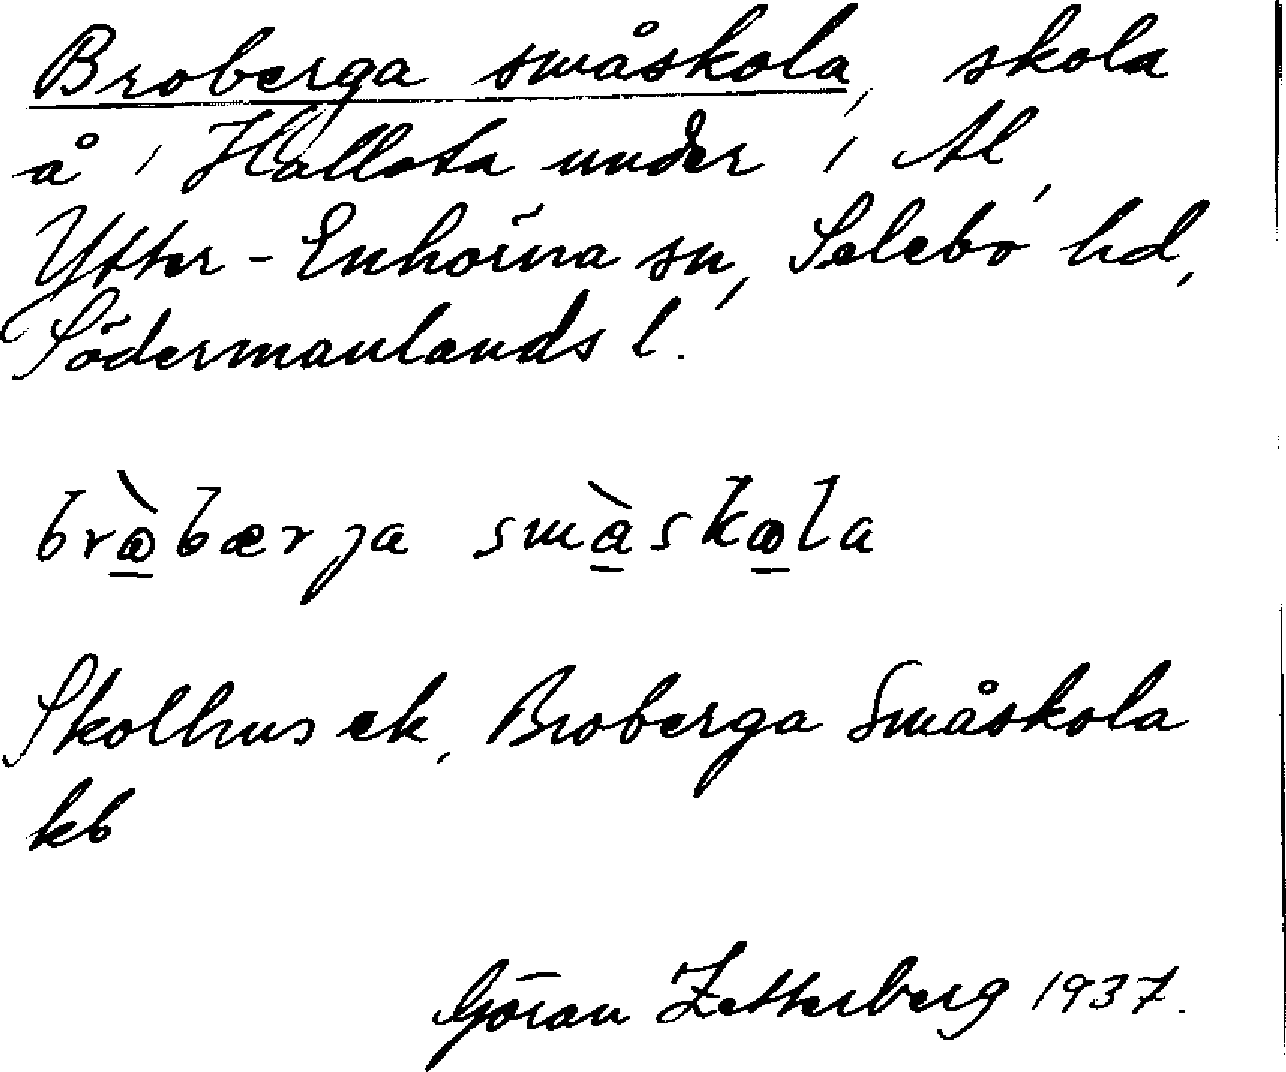 Broberga småskola, skola
å 1 Hållsta under 1 Al,
Ytter-Enhörna sn, Selebo hd,
Södermanlands l.
småskola
Skolhus ek, Broberga Småskola
kb
Göran Zetterberg 1937.